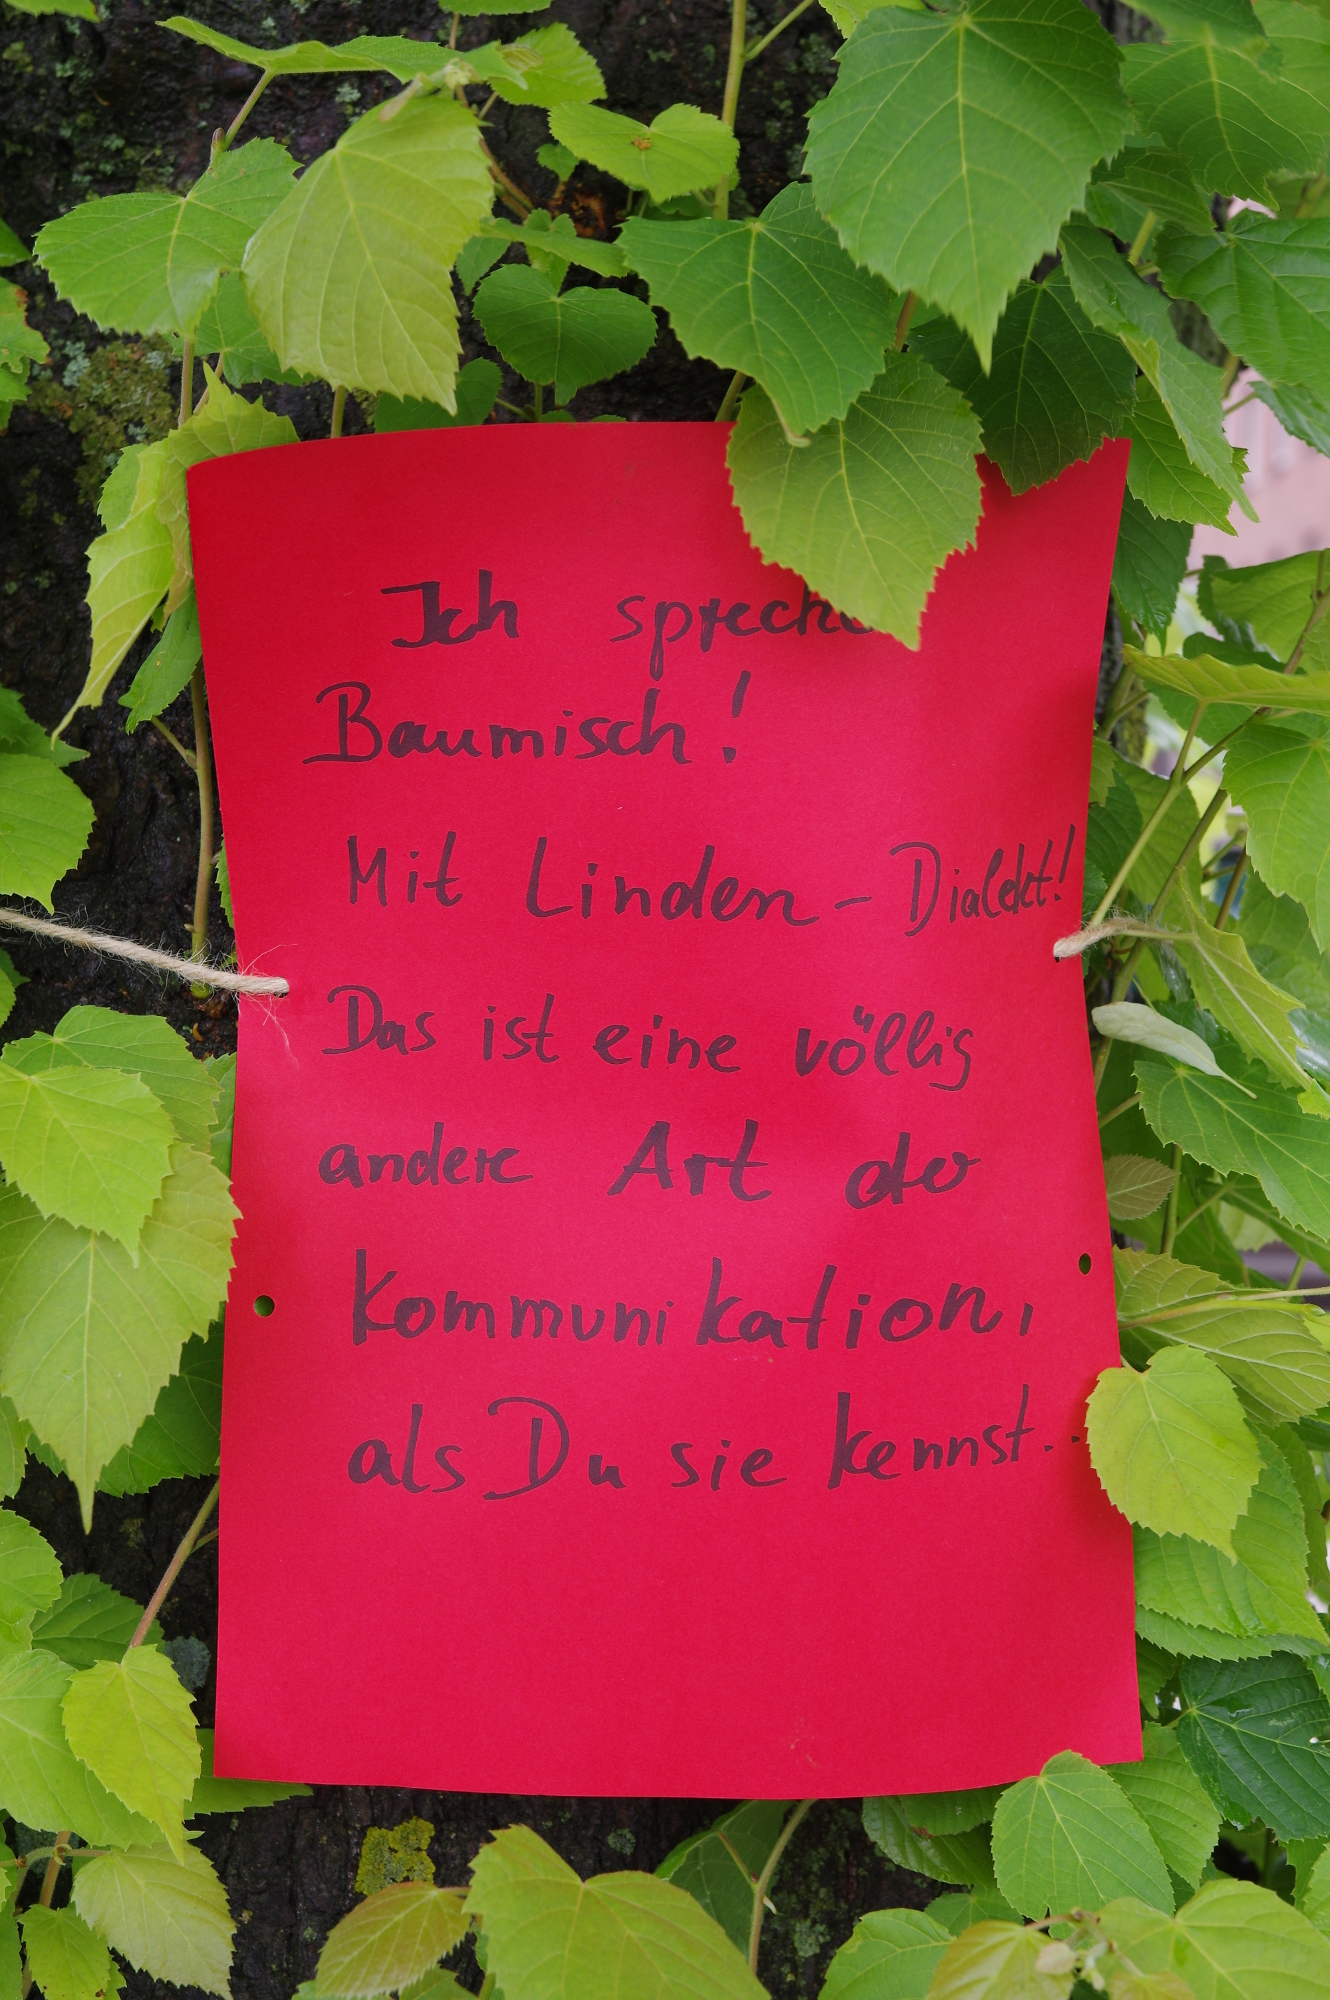 Ich spreche
Baumisch!
Mit Linden-Dialekt!
Das ist eine völlig
andere Art der
Kommunikation,
als Du sie kennst...